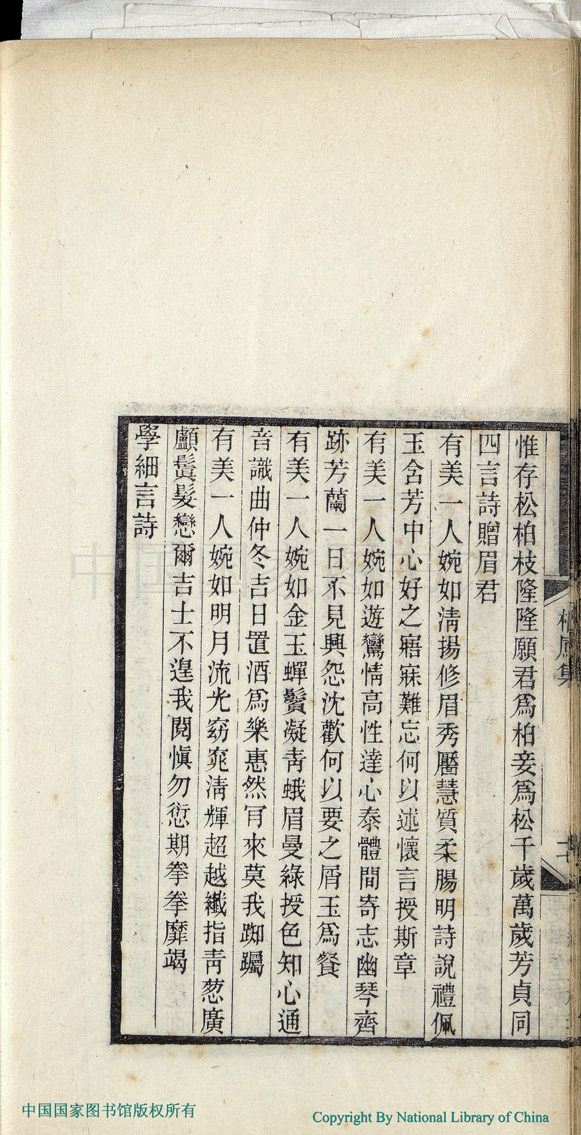 惟存松柏枝隆隆願君爲柏妾爲松千歲萬歲芳貞同
四言詩贈眉君
有美一人婉如淸揚修眉秀靨慧質柔腸明詩說禮佩
玉含芳中心好之寤寐難忘何以述懷言授斯章
有美一人婉如遊鸞情高性達心泰體閒寄志幽琴齊
跡芳蘭一日不見興怨沈歡何以要之屑玉爲餐
有美一人婉如金玉蟬鬢凝靑蛾眉曼綠授色知心通
音識曲仲冬吉日置酒爲樂惠然肎來莫我踟躅
有美一人婉如明月流光窈窕淸輝超越纖指靑蔥廣
顱鬒髮戀爾吉士不遑我閱愼勿愆期拳拳靡竭
學細言詩
集
中国国家图书馆版权所有
Copyright By National Library of China